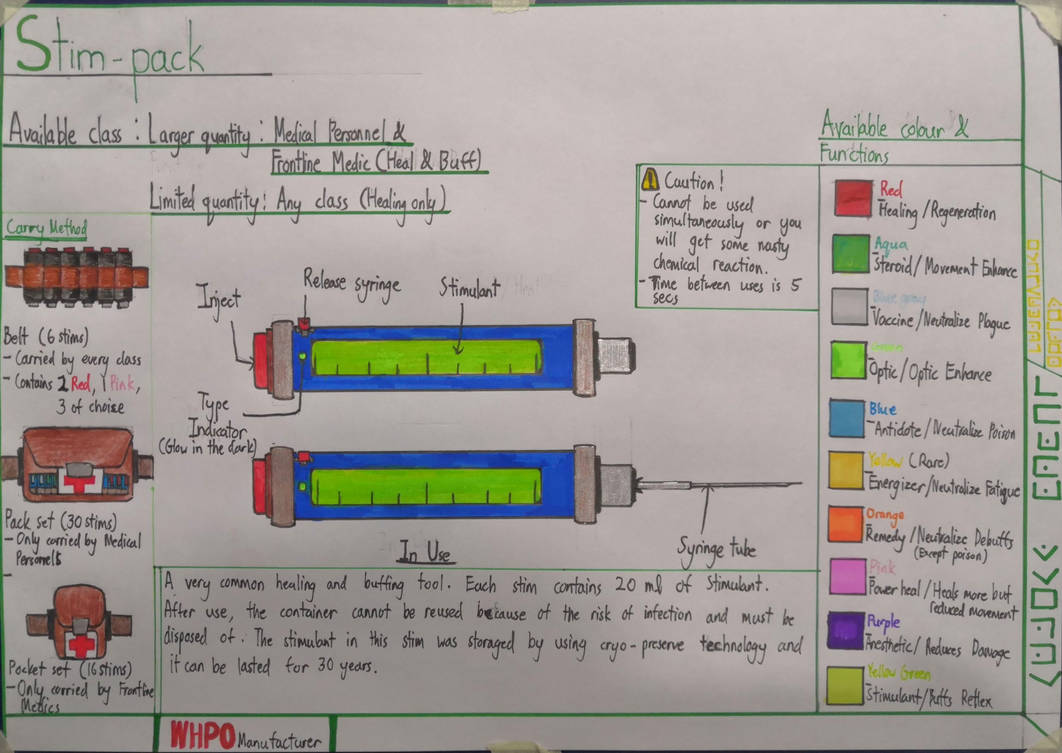 Stim-pack
Available class : Larger quantity : Medical Personnel &
Frontline Medic (Heal & Buff)
Limited quantity : Any class (Healing only)
Carry Method
Belt (6 stims)
- Carried by every class
- Contains 2 Red, 1 Pink,
3 of choice
Pack set (30 stims)
- Only carried by Medical
Personels
-
Pocket set (16 stims)
- Only carried by Frontline
Medics
Inject
Release syringe
Stimulant
Type
Indicator
(Glow in the dark)
In Use
Syringe tube
Caution !
- Cannot be used
simultaneously or you
will get some nasty
chemical reaction.
- Time between uses is 5
secs
A very common healing and buffing tool. Each stim contains 20 ml of Stimulant.
After use, the container cannot be reused because of the risk of infection and must be
disposed of. The stimulant in this stim was storaged by using cryo-preserve technology and
it can be lasted for 30 years.
WHPO Manufacturer
Available colour &
Functions
Red
- Healing / Regeneration
Aqua
- Steroid / Movement Enhance
Blue gray
- Vaccine / Neutralize Plague
Green
- Optic / Optic Enhance
Blue
- Antidote / Neutralize Poison
Yellow (Rare)
- Energizer / Neutralize Fatigue
Orange
- Remedy / Neutralize Debuffs
(Except poison)
Pink
- Power heal / Heals more but
reduced movement
Purple
- Anesthetic / Reduces Damage
Yellow Green
- Stimulant / Buffs Reflex